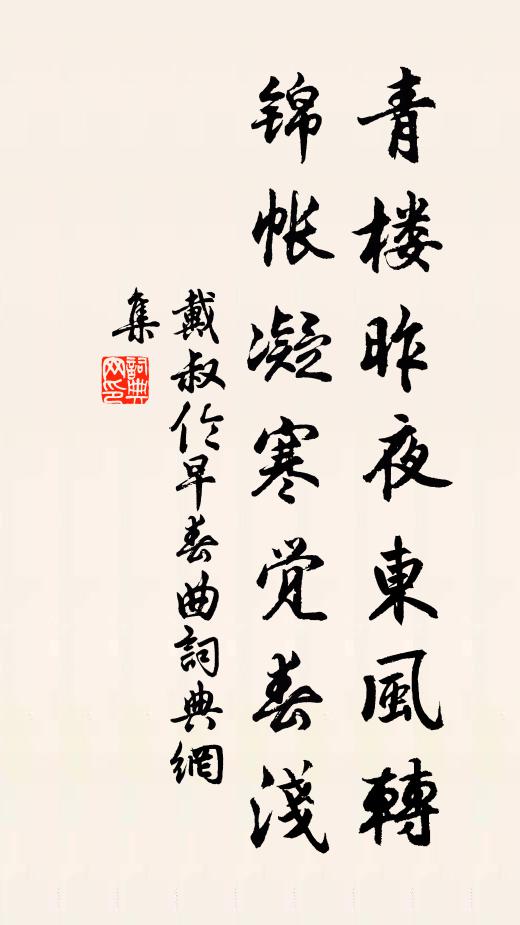 青楼昨夜東風轉
錦帐凝寒觉春淺
戴叔伦早春曲詞典網
集
詞典网印